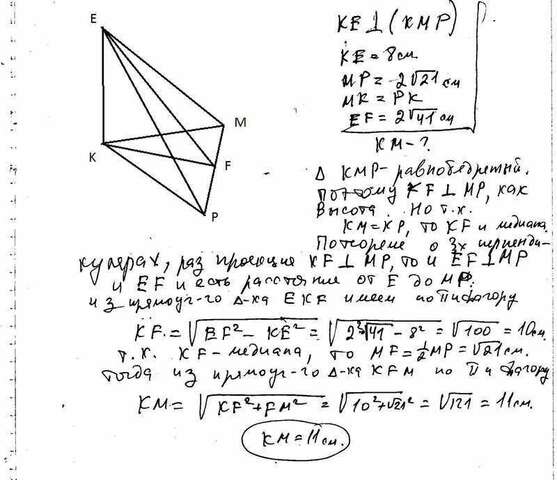 E
M
K
F
P
KE ⊥ (KMP)
KE = 8 см
MP = 2√21 см
MK = PK
EF = 2√41 см
KM - ?
Δ KMP - равнобедренный.
Поэтому KF ⊥ MP, как
высота. Но т.к.
KM = KP, то KF и медиана.
По теореме о 3х перпенди-
кулярах, раз проекция KF ⊥ MP, то и EF ⊥ MP
и EF и есть расстояние от E до MP.
из прямоуг-го Δ-ка EKF имеем по Пифагору
KF = √EF² - KE² = √2²√41 - 8² = √100 = 10см.
т.к. KF - медиана, то MF = 1/2 MP = √21 см.
тогда из прямоуг-го Δ-ка KFM по Пифагору
KM = √KF² + FM² = √10² + √21² = √121 = 11 см.
KM = 11 см.